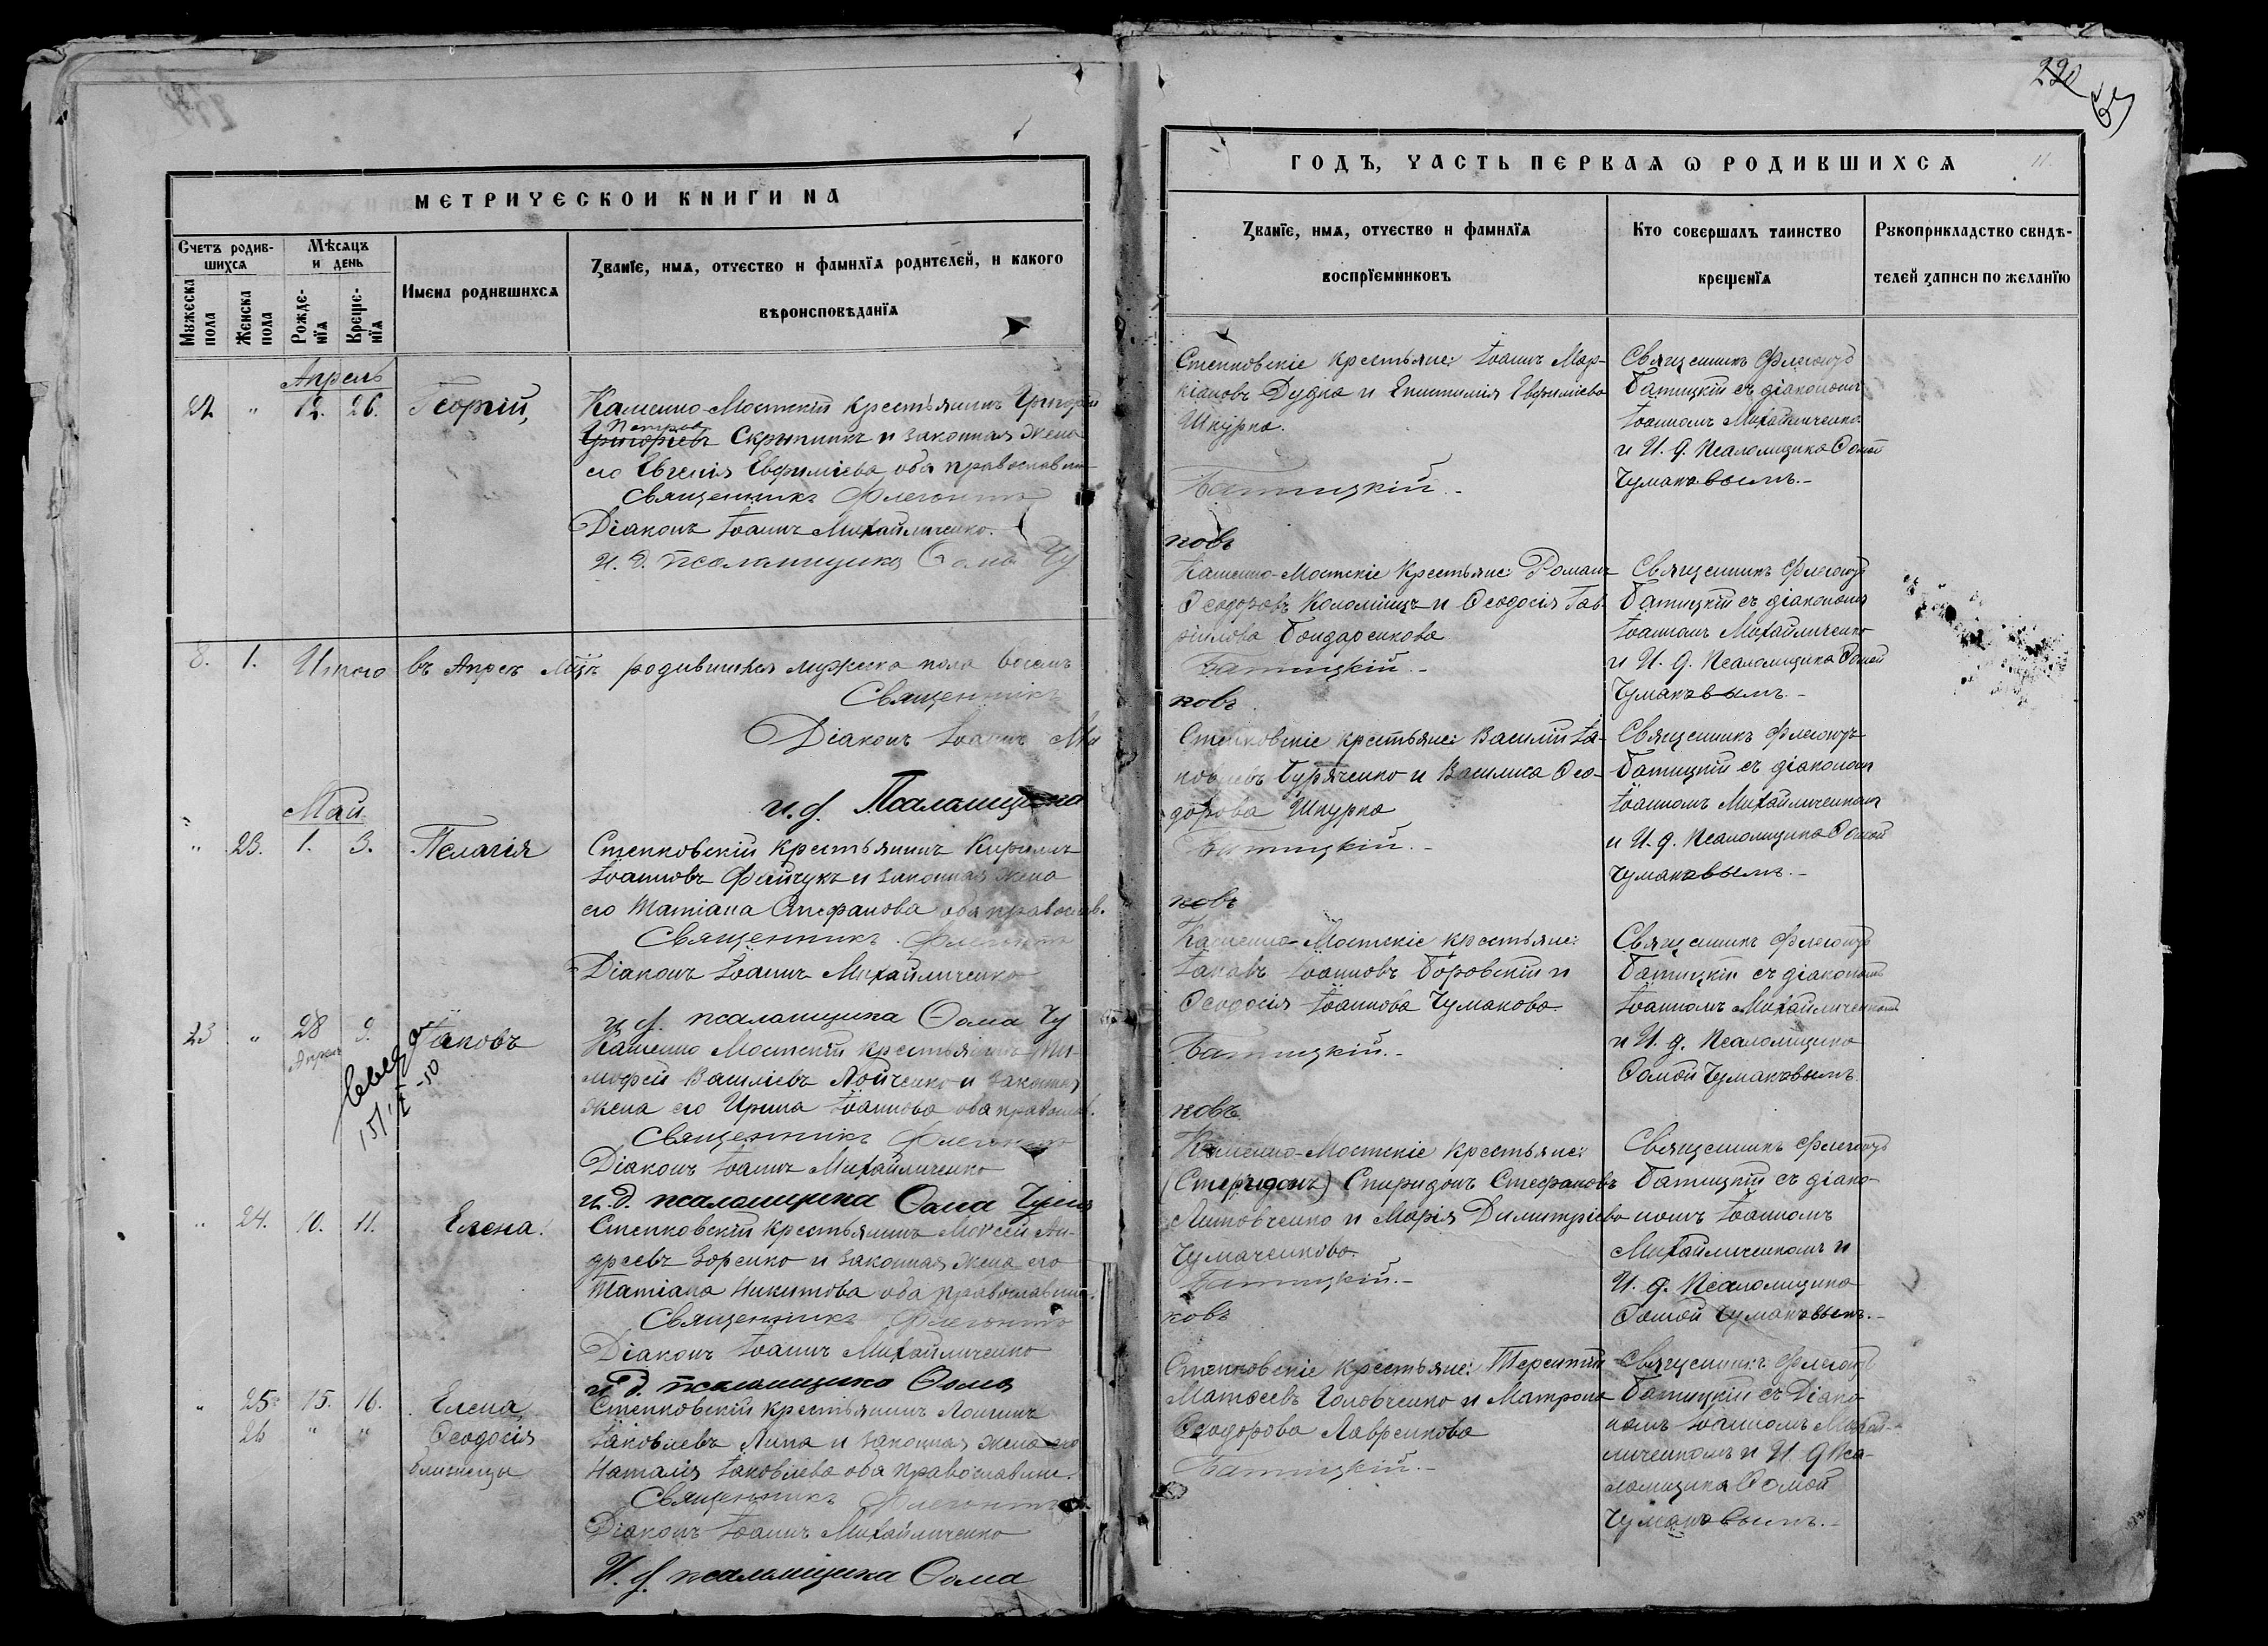 МЕТРИЧЕСКОЙ КНИГИ НА
Счетъ родив-
шихся
Мѣсяцъ
и день
Мужеска
пола
Женска
пола
Рожде-
нїя
Креще-
нїя
Имена родившихся
Званїе, имя, отчество и фамилїя родителей, и какого
вѣроисповѣданїя
Апрель
22 " 12. 26. Георгій,
Каменно-Мостскій крестьянинъ Григорій
Петровъ
Григоріевъ Скрыпникъ и законная жена
его Евгенія Евфиміева оба православн-
Священникъ Флегонтъ
Діаконъ Іоаннъ Михайличенко.
И. д. псаломщика Ѳома Чу
8. 1. Итого въ Апрѣлѣ м̃цѣ родившихся мужеска пола восемь
Священникъ
Діаконъ Іоаннъ Ми
и. д. Псаломщика
Май
" 23. 1. 3. Пелагія
Степковскій крестьянинъ Кириллъ
Іоанновъ Файчукъ и законная жена
его Татіана Стефанова оба православ.
Священникъ Флегонтъ
Діаконъ Іоаннъ Михайличенко
и. д. псаломщика Ѳома Чу
23 " 28 9. Іаковъ
Апрѣл
15/IX-50
Каменно Мостскій крестьянинъ Ти-
мофей Василіевъ Лойченко и законная
жена его Ирина Іоаннова оба православ.
Священникъ Флегонтъ
Діаконъ Іоаннъ Михайличенко
и. д. псаломщика Ѳома Чума
" 24. 10. 11. Елена.
Степковскій крестьянинъ Моѵсей Ан-
дреевъ Зоренко и законная жена его
Татіана Никитова оба православн.
Священникъ Флегонтъ
Діаконъ Іоаннъ Михайличенко
и. д. псаломщика Ѳома
" 25. 15. 16. Елена,
26 " " Ѳеодосія
близнецы
Степковскій крестьянинъ Лонгинъ
Іаковлевъ Липа и законная жена его
Наталія Іаковлева оба православн.
Священникъ Флегонтъ
Діаконъ Іоаннъ Михайличенко
И. д. псаломщика Ѳома
220
65
ГОДЪ, ЧАСТЬ ПЕРВАЯ Ѡ РОДИВШИХСЯ
11.
Званїе, имя, отчество и фамилїя
воспрїемниковъ
Кто совершалъ таинство
крещенїя
Рукоприкладство свидѣ-
телей записи по желанїю
Степковскіе крестьяне: Іоаннъ Мар-
кіановъ Дудка и Епистимія Евфиміева
Шкурка.
Батицкій.-
ковъ
Священникъ Флегонтъ
Батицкій съ діакономъ
Іоанномъ Михайличенко
и И. д. Псаломщика Ѳомой
Чумаковымъ.-
Каменно-Мостскіе крестьяне: Романъ
Ѳеодоровъ Коломіецъ и Ѳеодосія Гав-
риилова Бондаренкова
Батицкій.-
ковъ
Священникъ Флегонтъ
Батицкій съ діакономъ
Іоанномъ Михайличенко
и И. д. Псаломщика Ѳомой
Чумаковымъ.-
Степковскіе крестьяне: Василій Іа-
ковлевъ Бурячеико и Василиса Ѳео-
дорова Шкурка
Батицкій.-
ковъ
Священникъ Флегонтъ
Батицкій съ діакономъ
Іоанномъ Михайличенкомъ
и И. д. Псаломщика Ѳомой
Чумаковымъ.-
Каменно-Мостскіе крестьяне:
Іаковъ Іоанновъ Боровскій и
Ѳеодосія Іоаннова Чумакова.
Батицкій.-
ковъ.
Священникъ Флегонтъ
Батицкій съ діакономъ
Іоанномъ Михайличенкомъ
и И. д. Псаломщика
Ѳомой Чумаковымъ.
Каменно-Мостскіе крестьяне:
Спиридонъ Стефановъ
Литовченко и Марія Димитріева
Чумаченкова.
Батицкій.-
ковъ
Священникъ Флегонтъ
Батицкій съ діако-
номъ Іоанномъ
Михайличенкомъ и
И. д. Псаломщика
Ѳомой Чумаковымъ.-
Степковскіе крестьяне: Терентій
Матѳеевъ Головченко и Матрона
Ѳеодорова Лавренкова
Батицкій.-
Священникъ Флегонтъ
Батицкій съ Діако-
номъ Іоанномъ Михай-
личенкомъ и И. д Пса-
ломщика Ѳомой
Чумаковымъ.-